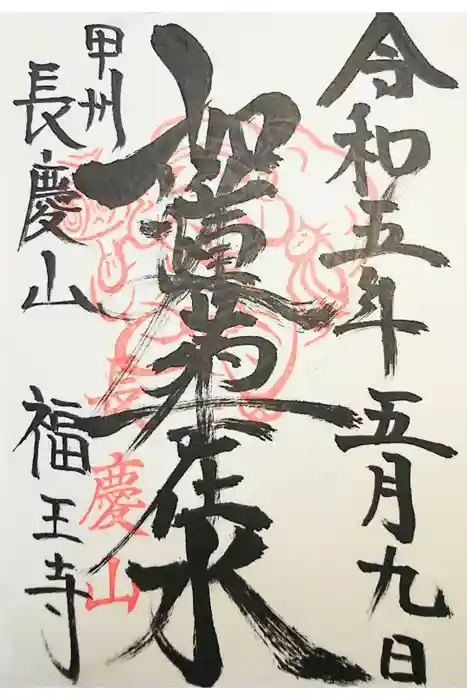 令和五年 五月九日
如蓮華在水
甲州
長慶山 福王寺
長慶山